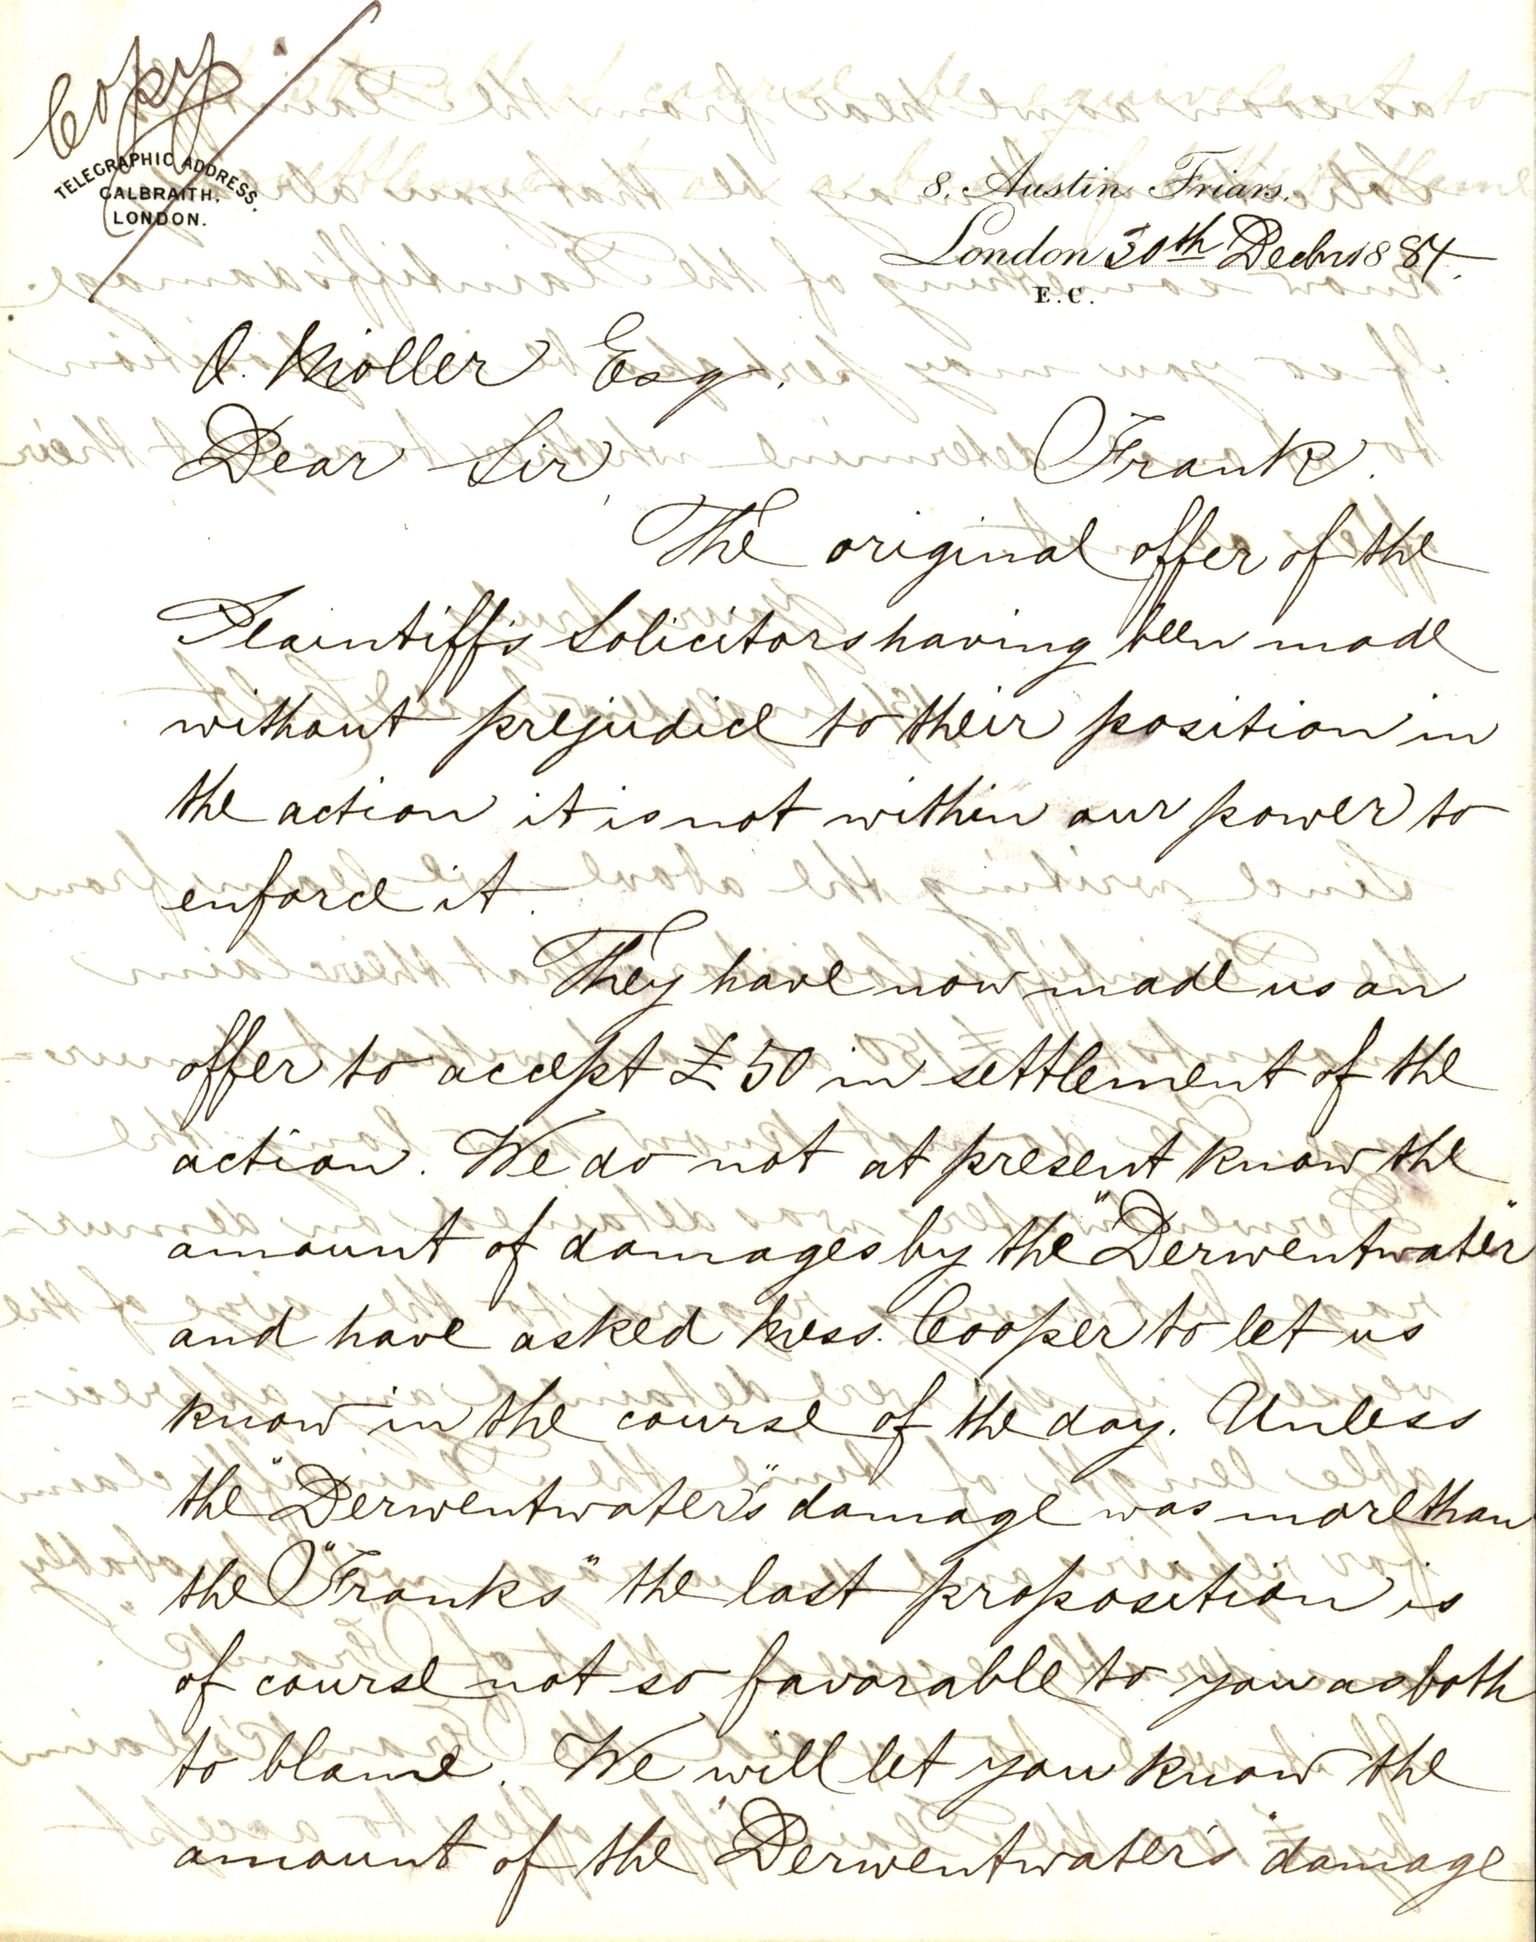 Copy
TELEGRAPHIC ADDRESS.
GALBRAITH.
LONDON.
8. Austin Friars.
London 30th Decbr 1884.
E.C.
O. Möller Esq.
Dear Sir, Frank.
The original offer of the
Plaintiff's Solicitors having been made
without prejudice to their position in
the action it is not within our power to
enforce it.
They have now made us an
offer to accept £50 in settlement of the
action. We do not at present know the
amount of damages by the "Derwentwater"
and have asked Mess. Cooper to let us
know in the course of the day. Unless
the "Derwentwater's" damage was more than
the "Franks" the last proposition is
of course not so favorable to you as both
to blame. We will let you know the
amount of the "Derwentwater's" damage